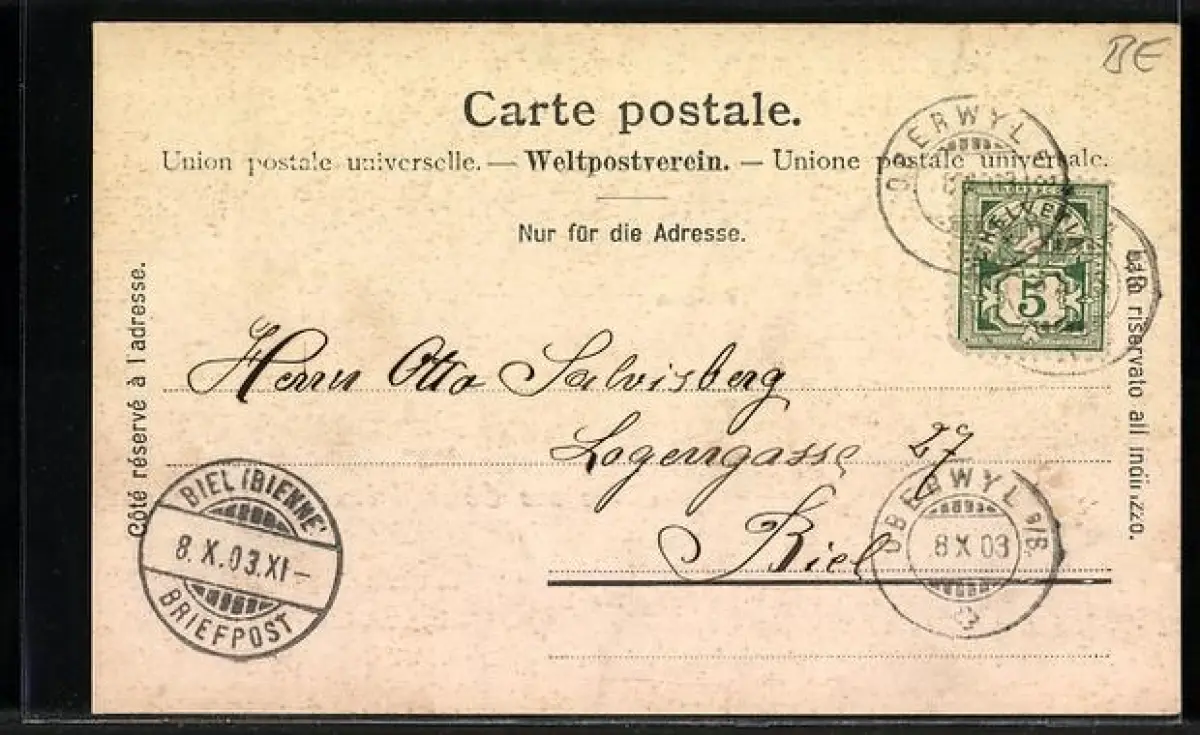 BE
Carte postale.
Union postale universelle. — Weltpostverein. — Unione postale universale.
Nur für die Adresse.
Côté réservé à l'adresse.
riservato all indirizzo.
OBERWYL
HELVETIA
5
Herrn Otto Salvisberg
Logengasse 27
Biel
BIEL (BIENNE)
8.X.03.XI–
BRIEFPOST
OBERWYL B/B.
8 X 03